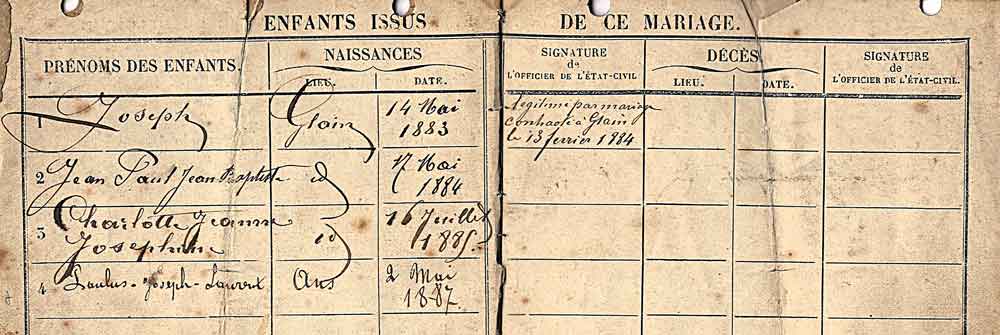 ENFANTS ISSUS DE CE MARIAGE.
PRÉNOMS DES ENFANTS. NAISSANCES SIGNATURE de L'OFFICIER DE L'ÉTAT-CIVIL. DÉCÈS SIGNATURE de L'OFFICIER DE L'ÉTAT-CIVIL.
LIEU. DATE. LIEU. DATE.
1 Joseph Glain 14 Mai 1883 Légitimé par mariage
contracté à Glain
le 13 fevrier 1884
2 Jean Paul Jean Baptiste id 17 Mai
1884
3 Charlotte Jeanne id 16 Juillet
Josephine 1885
4 Paulus-Joseph-Laurent Ans 2 Mai
1887.